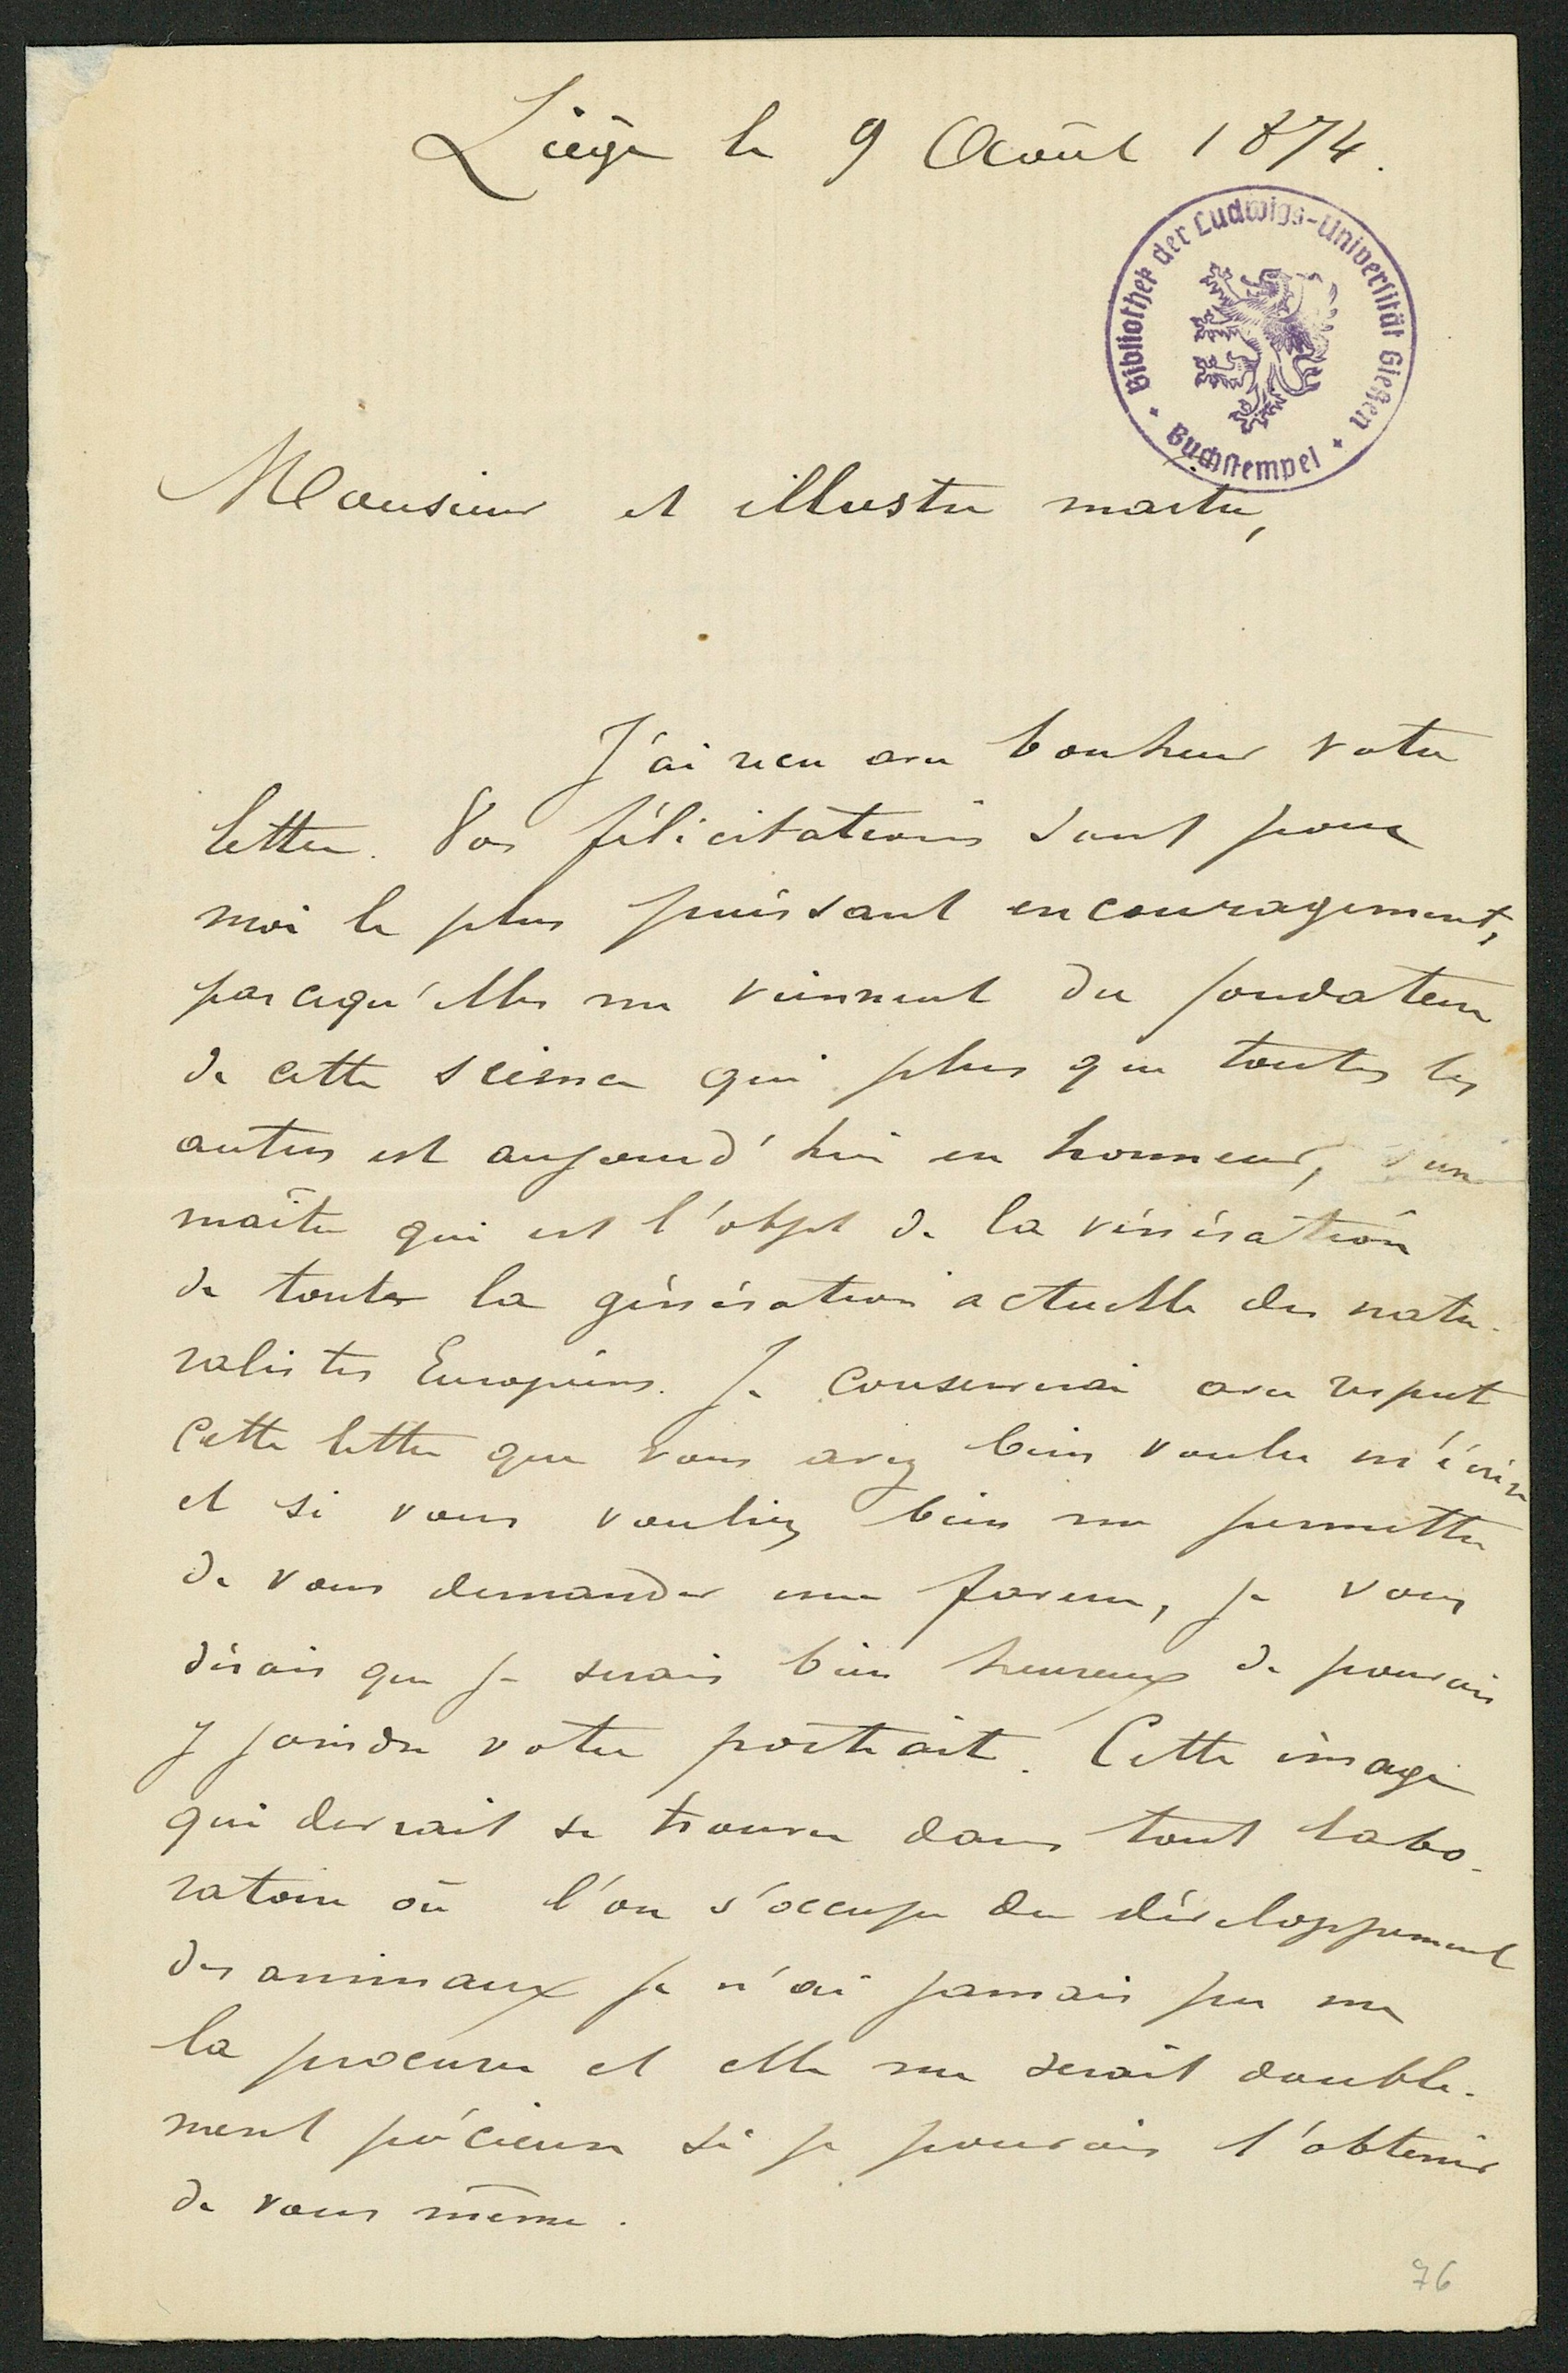 Liège le 9 Août 1874.
Bibliothek der Ludwigs-Universität Gießen
Buchstempel
Monsieur et illustre maitre,
J'ai reçu avec bonheur votre
lettre. Vos félicitations sont pour
moi le plus puissant encouragement,
parcequ'elles me viennent du fondateur
de cette science qui plus que toutes les
autres est aujourd'hui en honneur, d'un
maître qui est l'objet de la vénération
de toute la génération actuelle des natu-
ralistes Européens. Je conserverai avec respect
cette lettre que vous avez bien voulu m'écrire
et si vous vouliez bien me permettre
de vous demander une faveur, je vous
dirais que je serais bien heureux de pouvoir
y joindre votre portrait. Cette image
qui devrait se trouver dans tout labo-
ratoire où l'on s'occupe du développement
des animaux je n'ai jamais pu me
la procurer et elle me serait double-
ment précieuse si je pouvais l'obtenir
de vous même.
76